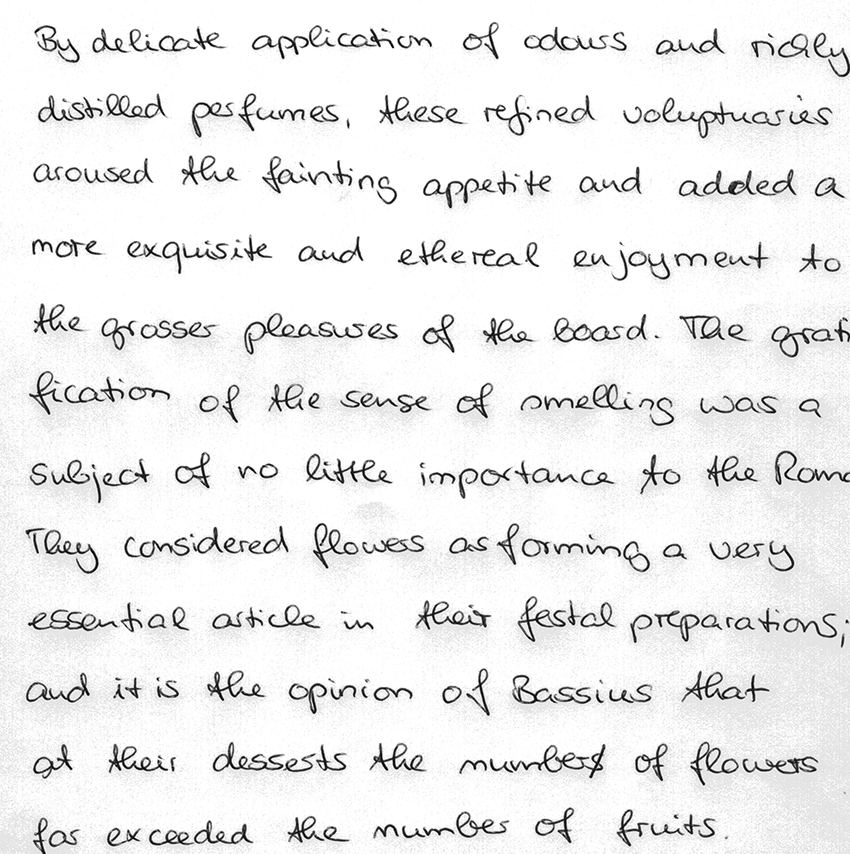 By delicate application of odours and richly
distilled perfumes, these refined voluptuaries
aroused the fainting appetite and added a
more exquisite and ethereal enjoyment to
the grosser pleasures of the board. The grati
fication of the sense of smelling was a
subject of no little importance to the Roma
They considered flowers as forming a very
essential article in their festal preparations;
and it is the opinion of Bassius that
at their desserts the number of flowers
far exceeded the number of fruits.